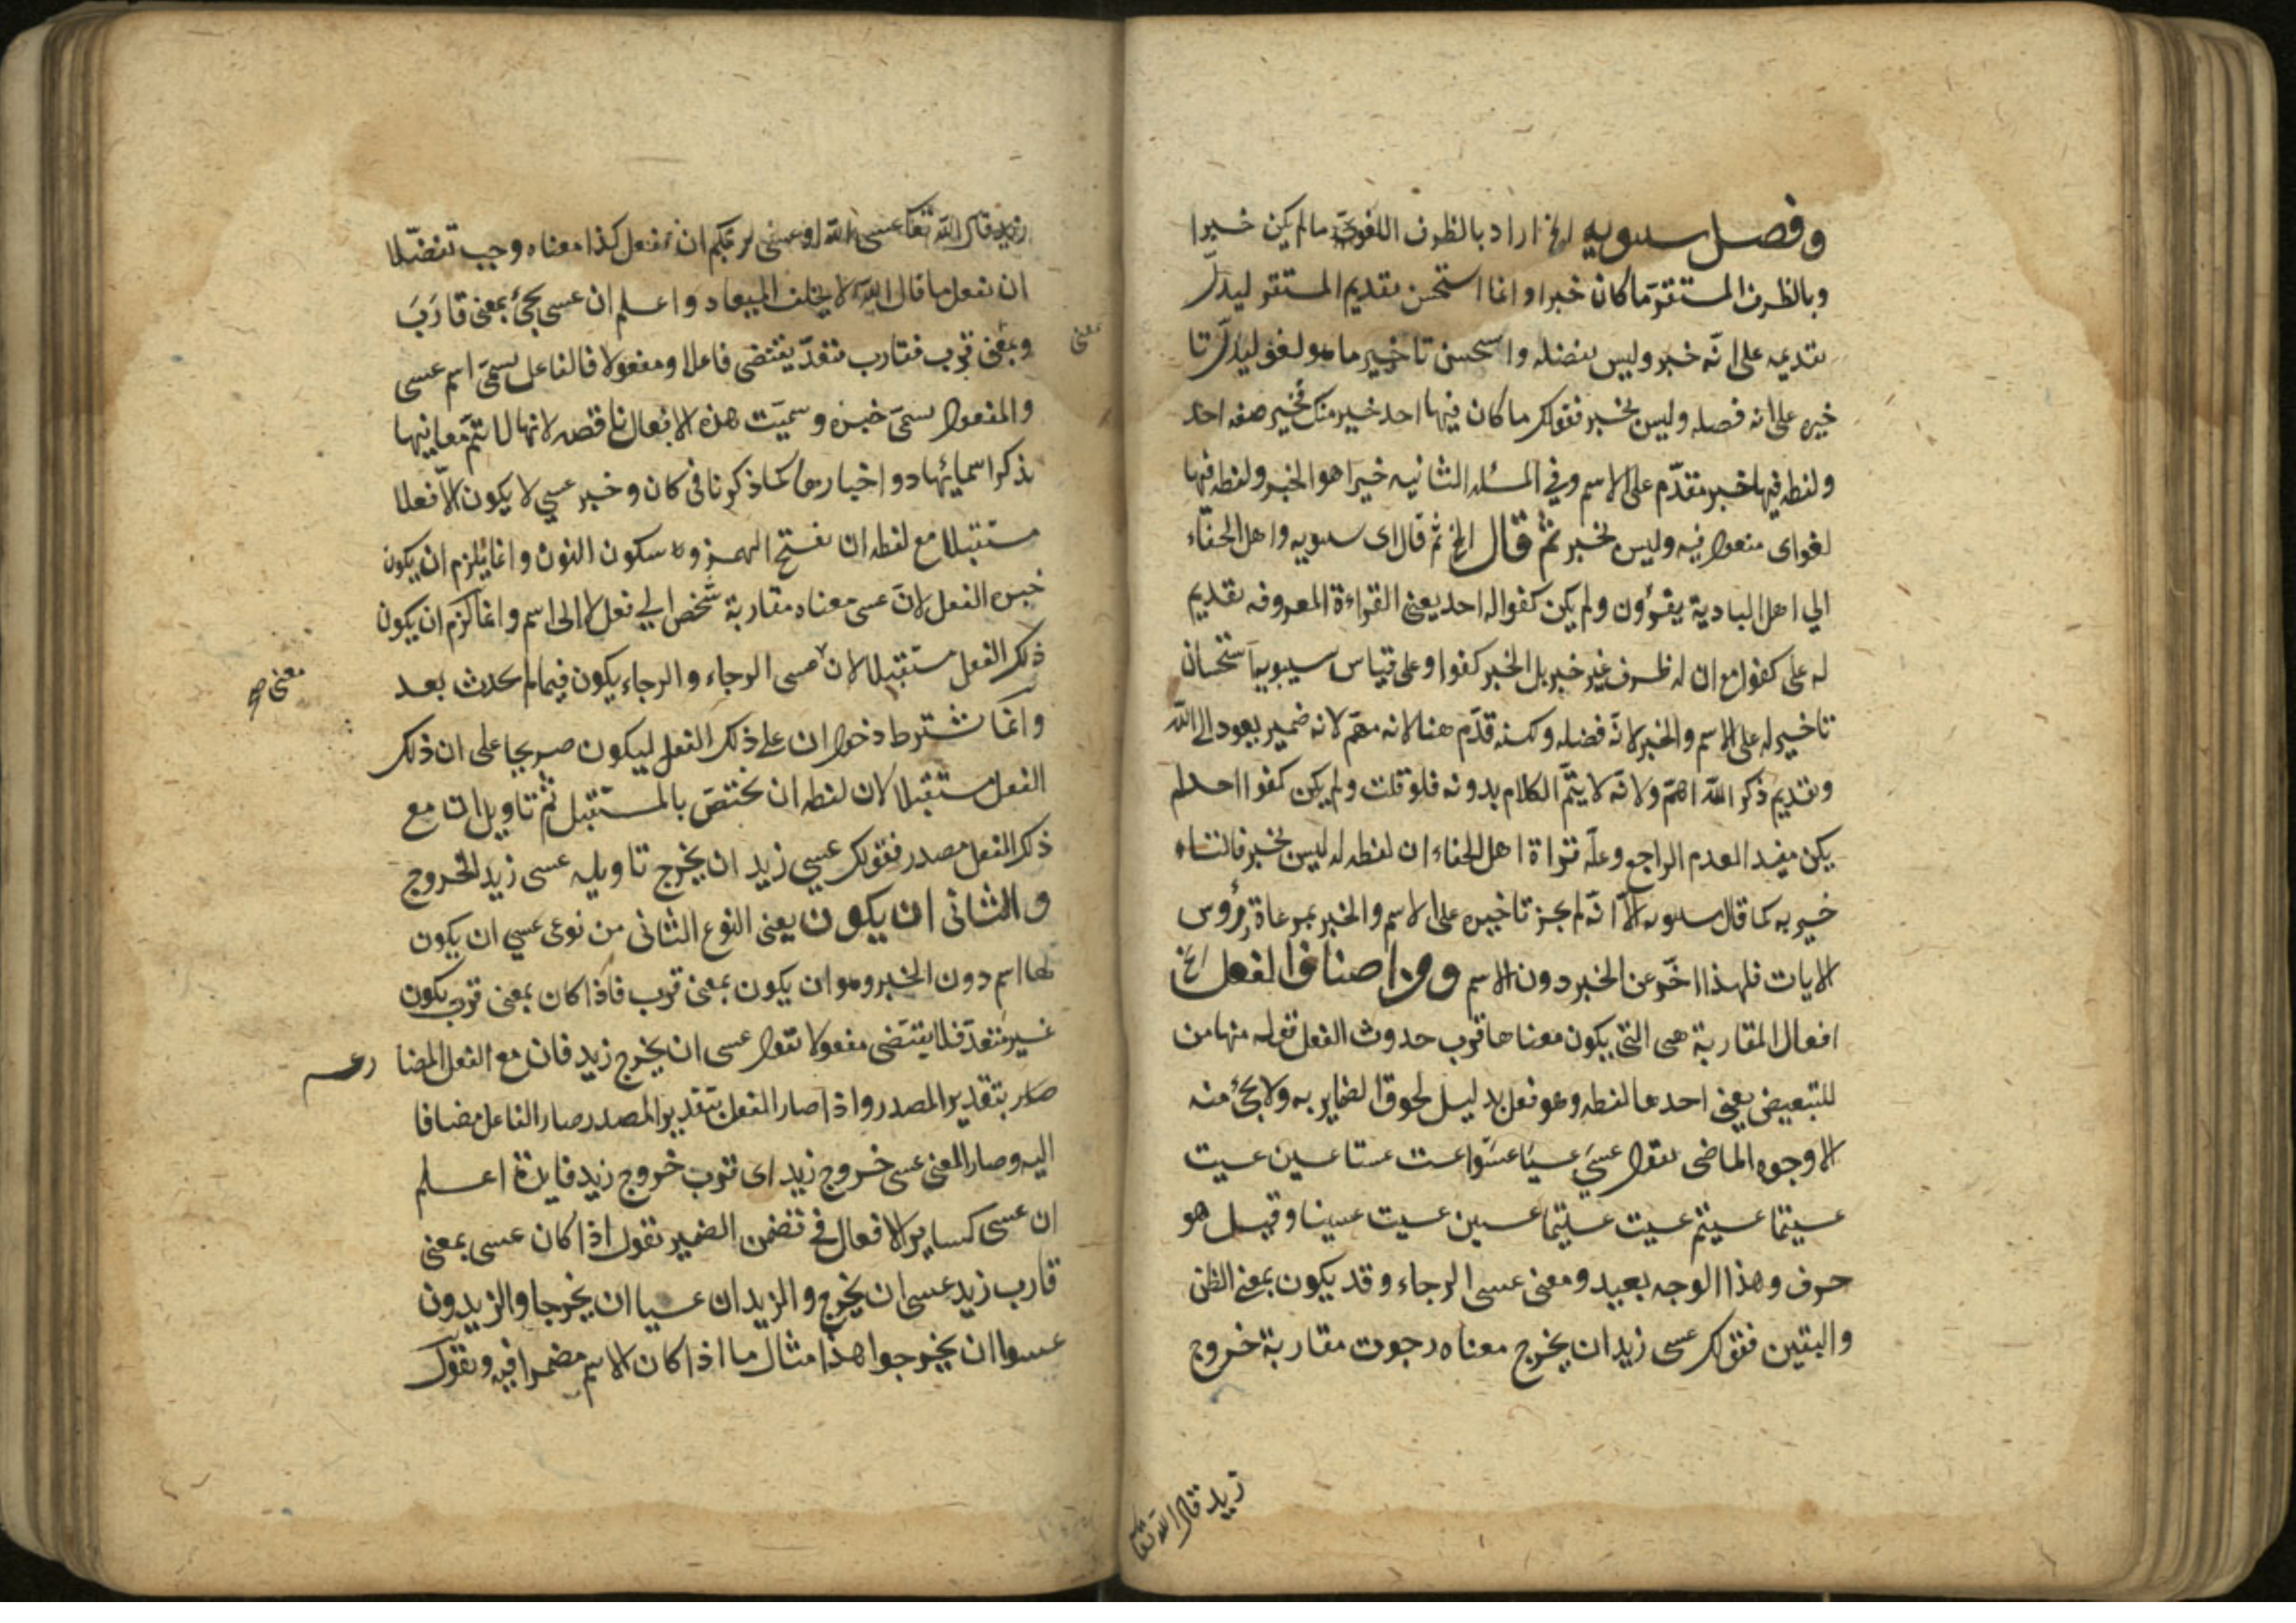 وفصل سيبويه الخ اراد بالظرف اللغوى مالم يكن خبرا
وبالظرف المستقر ما كان خبرا وانما استحسن تقديم المستقر ليدل
بتقديمه على انه خبر وليس بفضله واستحسن تاخير ما هو لغو ليدل تا
خيره على انه فضله وليس بخبر فقولك ما كان فيها احد خير منك فخير صفه احد
ولفظه فيها خبر مقدم على الاسم وفي المسئله الثانيه خيرا هو الخبر ولفظه فيها
لغو اى مفعول فيه وليس بخبر ثم قال الخ ثم قال اى سيبويه واهل الجفاء
الي اهل البادية يقرؤن ولم يكن كفوا له احد يعنى القراءة المعروفه تقديم
له على كفوا مع ان له ظرف غير خبر بل الخبر كفوا وعلى قياس سيبويه استحسان
تاخير له على الاسم والخبر لانه فضله ولكنه قدم هنا لانه مهم لانه ضمير يعود الى الله
وتقديم ذكر الله اهم ولانه لا يتم الكلام بدونه فلو قلت ولم يكن كفوا احد لم
يكن مفيد العدم الراجع وعلة قراة اهل الجفاء ان لفظه له ليس بخبر فالتاء
خير به كما قال سيبويه الا انه لم يجز تاخيره على الاسم والخبر لمرعاة رؤس
الايات فلهذا اخر عن الخبر دون الاسم ومن اصناف الفعل الخ
افعال المقاربة هى التى يكون معناها قرب حدوث الفعل قوله منها من
للتبعيض يعنى احدها لفظه وهو فعل بدليل لحوق الضماير به ولا يجئ منه
الا وجوه الماضى تقول عسى عسيا عسوا عست عستا عسين عسيت
عسيتما عسيتم عسيت عسيتما عسين عسيت عسينا وقيل هو
حرف وهذا الوجه بعيد ومعنى عسى الرجاء وقد يكون بمعنى الظن
واليقين فقولك عسى زيد ان يخرج معناه رجوت مقاربة خروج
زيد قال الله تعا
زيد قال الله تعا عسى الله او عسى ربكم ان تفعل كذا معناه وجب تفضلا
ان نفعل ما قال الله لا يخلف الميعاد واعلم ان عسى يجئ بمعنى قارَبَ
معنى
وبمعنى قرب فقارب متعد يقتضى فاعلا ومفعولا فالفاعل يسمى اسم عسى
والمفعول يسمى خبره وسميت هذه الافعال ناقصه لانها لا تتم معانيها
بذكر اسمائها دو اخبارها كما ذكرنا فى كان وخبر عسى لا يكون الا فعلا
مستقبلا مع لفظه ان بفتح الهمزه وسكون النون وانما يلزم ان يكون
خبره الفعل لان عسى معناه مقاربة شخص الي فعل لا الى اسم وانما لزم ان يكون
ذلك الفعل مستقبلا لان عسى الرجاء والرجاء يكون فيما لم يحدث بعد
معنى
وانما شترط دخول ان على ذلك الفعل ليكون صريحا على ان ذلك
الفعل مستقبلا لان لفظه ان يختص بالمستقبل ثم تاويل ان مع
ذكر الفعل مصدر فقولك عسي زيد ان يخرج تاويله عسى زيد الخروج
والثانى ان يكون يعنى النوع الثانى من نوعى عسي ان يكون
لها اسم دون الخبر وهو ان يكون بمعنى قرب فاذا كان بمعنى قرب يكون
غير متعد فلا يقتضى مفعولا تقول عسى ان يخرج زيد فان مع الفعل المضا رع
صار بتقدير المصدر واذا صار الفعل بتقدير المصدر صار الفاعل مضافا
اليه وصار المعنى عسى خروج زيد اى قرب خروج زيد فايدة اعلم
ان عسى كساير الافعال فى تضمن الضمير تقول اذا كان عسى بمعنى
قارب زيد عسى ان يخرج والزيدان عسيا ان يخرجا والزيدون
عسوا ان يخرجوا هذا مثال ما اذا كان الاسم مضمرا فيه وتقول